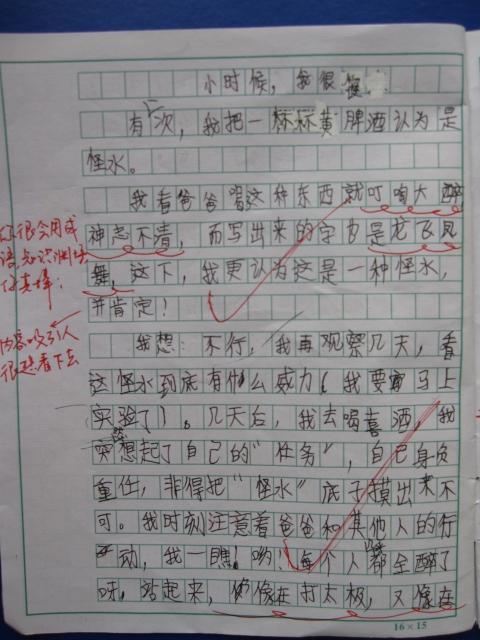 小时候，我很
有一次，我把一杯杯黄脾酒认为是
怪水。
我看爸爸喝这种东西就叮咛大醉
神志不清，而写出来的字也是龙飞凤
舞，这下，我更认为这是一种怪水，
并肯定！
我想：不行，我再观察几天，看
这怪水到底有什么威力！我要马上
实验了！。几天后，我去喝喜酒，我
突然想起了自己的“任务”，自己身负
重任，非得把“怪水”底子摸出来不
可。我时刻注意着爸爸和其他人的行
动，我一瞧！哟！每个人都全醉了
呀，站起来，好像在打太极，又像在
很会用成
内容吸引人
很想看下去
16×15